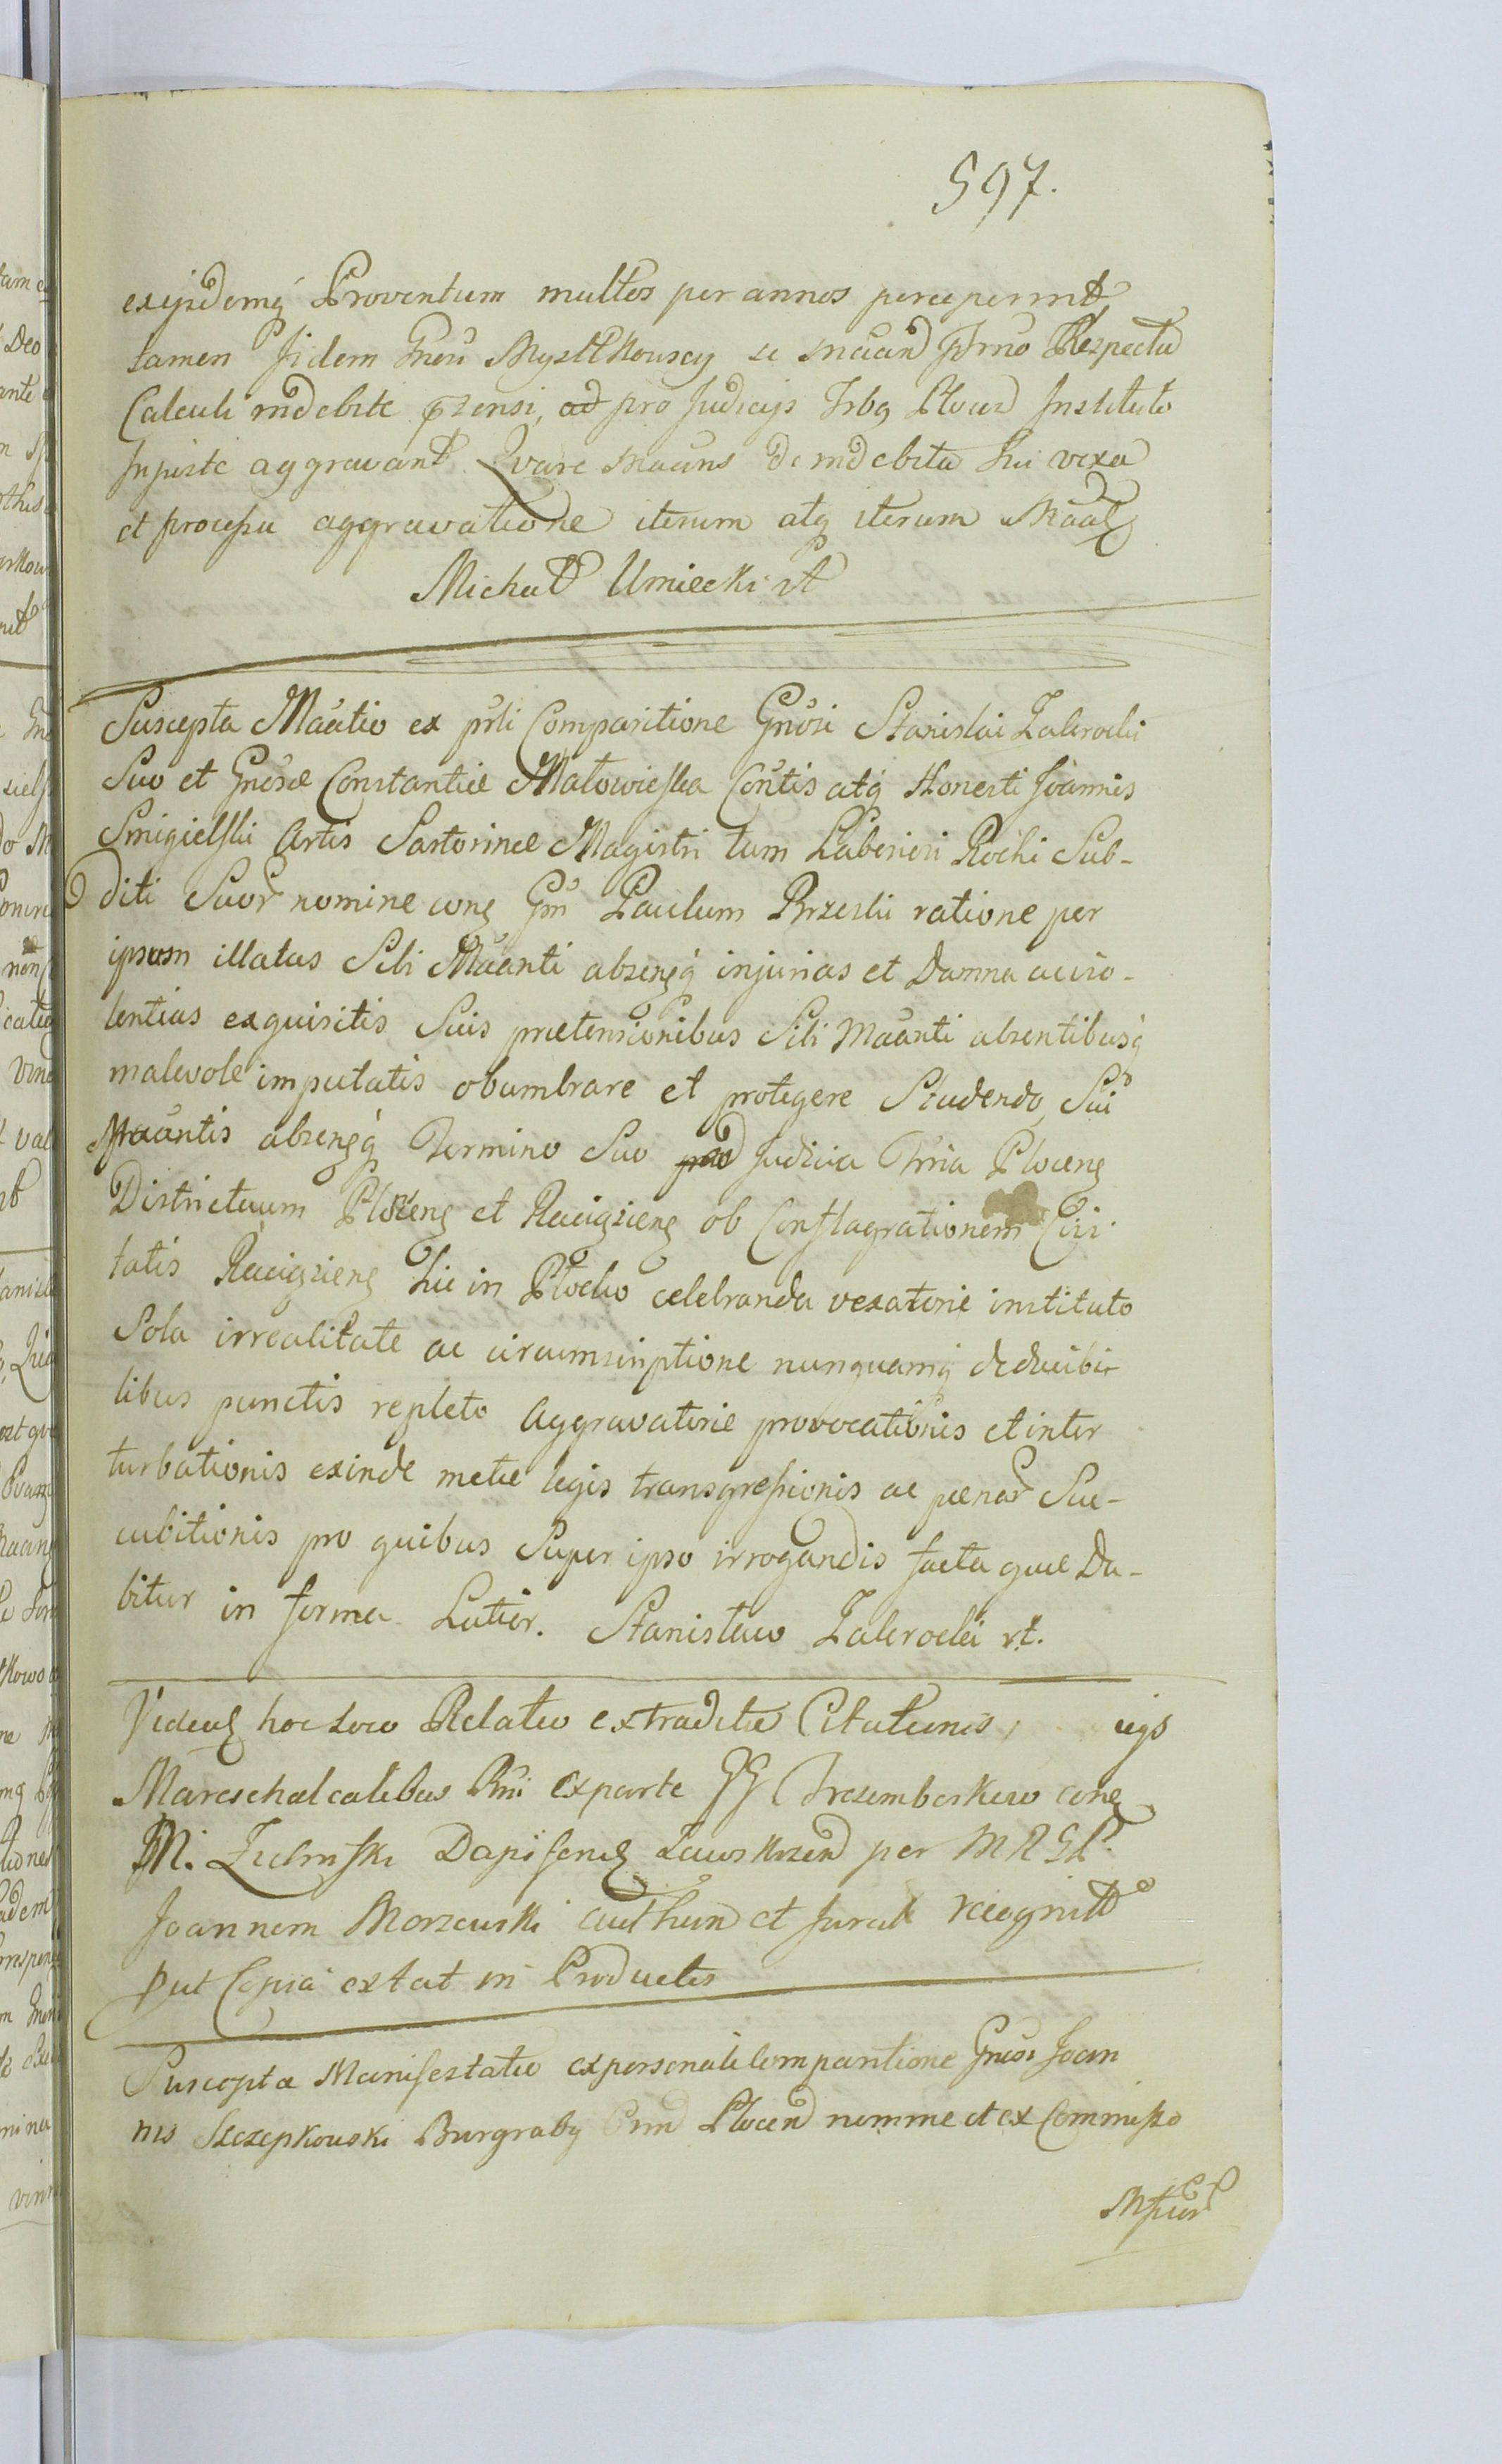 597.
exijsdemq́ Proventum multos per annos perceperunt
tamen Jidem Gnosi Myszłkowscy se Maand Termino Respectu
Calculi indebite pzensi, ad pro Judicijs Trbq Plocen Instituto
Injuste aggravant. Qvare Maans de indebita sui vexa
et processu aggravatione iterum atq iterum Maat
Michał Umiecki rt
Suscepta Maatio ex prli Comparitione Gnosi Stanislai Zakrocki
Suo et Gnosæ Constantiæ Małowieska Contis atq́ Honesti Joannis
Smigielski Artis Sartorinæ Magistri tum Laboriosi Rochi Sub-
diti Suor nomine cong Gm Paulum Brzeski ratione per
ipsum illatas Sibi Maanti absensq́ injurias et Damna ac vio-
lentias exquisitis Suis prætensionibus Sibi Maanti absentibusq́
malevole imputatis obumbrare et protegere Studendo, Sui
Maantis absensq́ Termino Suo pro Judicia Trria Plocens
Districtuum Plocens et Raciąziens ob Conflagrationem Civi-
tatis Raciąziens hic in Płocko celebranda vexatorie instituto
Sola irrealitate ac circumscriptione nunquamq́ deducibi-
libus punctis repleto Aggravatoriæ provocationis et inter
turbationis exinde metæ legis transgressionis ac pænar Suc-
cubitionis pro quibus Super ipso irrogandis facta quæ Da-
bitur in forma Latior. Stanisław Zakrocki rt.
Videat hoc Loco Relatio extraditæ Citationis, cijs
Mareschalcalibus Rni ex parte GG Trzcemborkiew cong
M. Zielinski Dapiferid Lawskrzen per MRGL.
Joannem Morzewski authen et Jurat recognitt
put Copia extat in Productis
Suscepta Manifestatio ex personali comparitione Gnosi Joan
nis Szczepkowski Burgraby Plocen nomine et ex Commisso